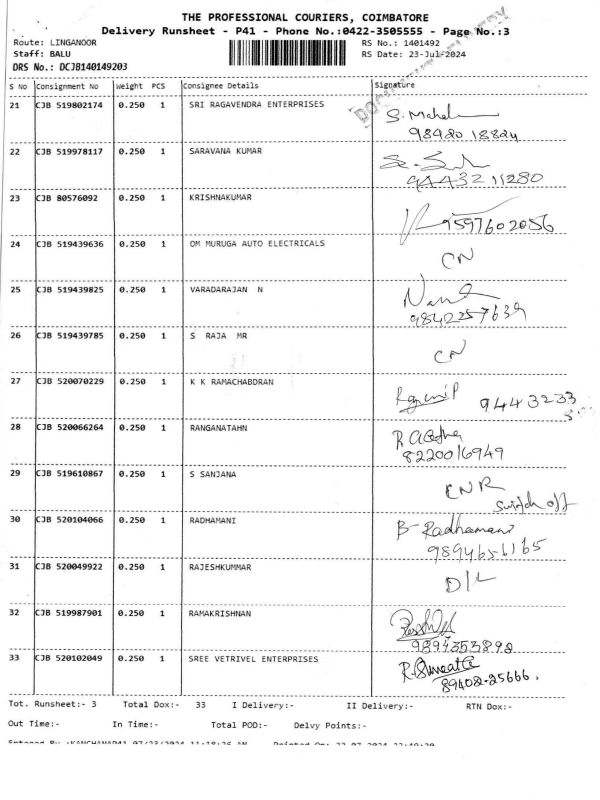 THE PROFESSIONAL COURIERS, COIMBATORE
Delivery Runsheet - P41 - Phone No.:0422-3505555 - Page No.:3
Route: LINGANOOR RS No.: 1401492
Staff: BALU RS Date: 23-Jul-2024
DRS No.: DCJB140149203
S No Consignment No Weight PCS Consignee Details Signature
21 CJB 519802174 0.250 1 SRI RAGAVENDRA ENTERPRISES
98420 18824
22 CJB 519978117 0.250 1 SARAVANA KUMAR
9443211280
23 CJB 80576092 0.250 1 KRISHNAKUMAR
9597602056
24 CJB 519439636 0.250 1 OM MURUGA AUTO ELECTRICALS
CN
25 CJB 519439825 0.250 1 VARADARAJAN N
9842257639
26 CJB 519439785 0.250 1 S RAJA MR
CN
27 CJB 520070229 0.250 1 K K RAMACHABDRAN
9443233
28 CJB 520066264 0.250 1 RANGANATAHN
8220016949
29 CJB 519610867 0.250 1 S SANJANA
CNR
Switch off
30 CJB 520104066 0.250 1 RADHAMANI
B- Radhamani
9894656165
31 CJB 520049922 0.250 1 RAJESHKUMMAR
D/L
32 CJB 519987901 0.250 1 RAMAKRISHNAN
9894353892
33 CJB 520102049 0.250 1 SREE VETRIVEL ENTERPRISES
89402-25666.
Tot. Runsheet:- 3 Total Dox:- 33 I Delivery:- II Delivery:- RTN Dox:-
Out Time:- In Time:- Total POD:- Delvy Points:-
Entered By :KANCHANAP41 07/23/2024 11:18:26 AM